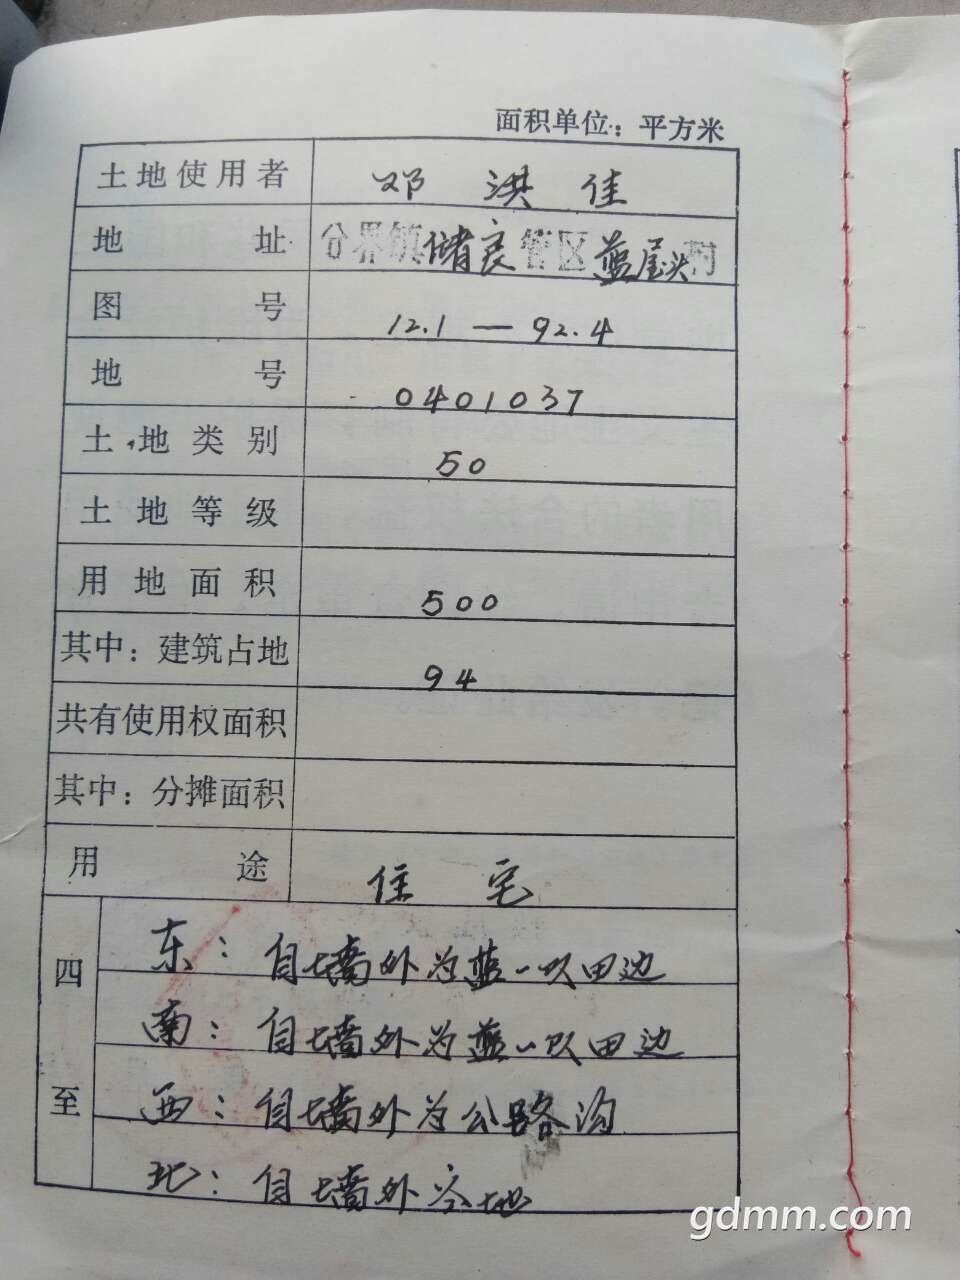 面积单位：平方米
土地使用者 邓洪佳
地址 分界镇储良管区蓝屋头村
图号 12.1—92.4
地号 0401037
土地类别 50
土地等级
用地面积 500
其中：建筑占地 94
共有使用权面积
其中：分摊面积
用途 住宅
四至
东：自墙外为蓝一队田边
南：自墙外为蓝一队田边
西：自墙外为公路沟
北：自墙外空地
gdmm.com